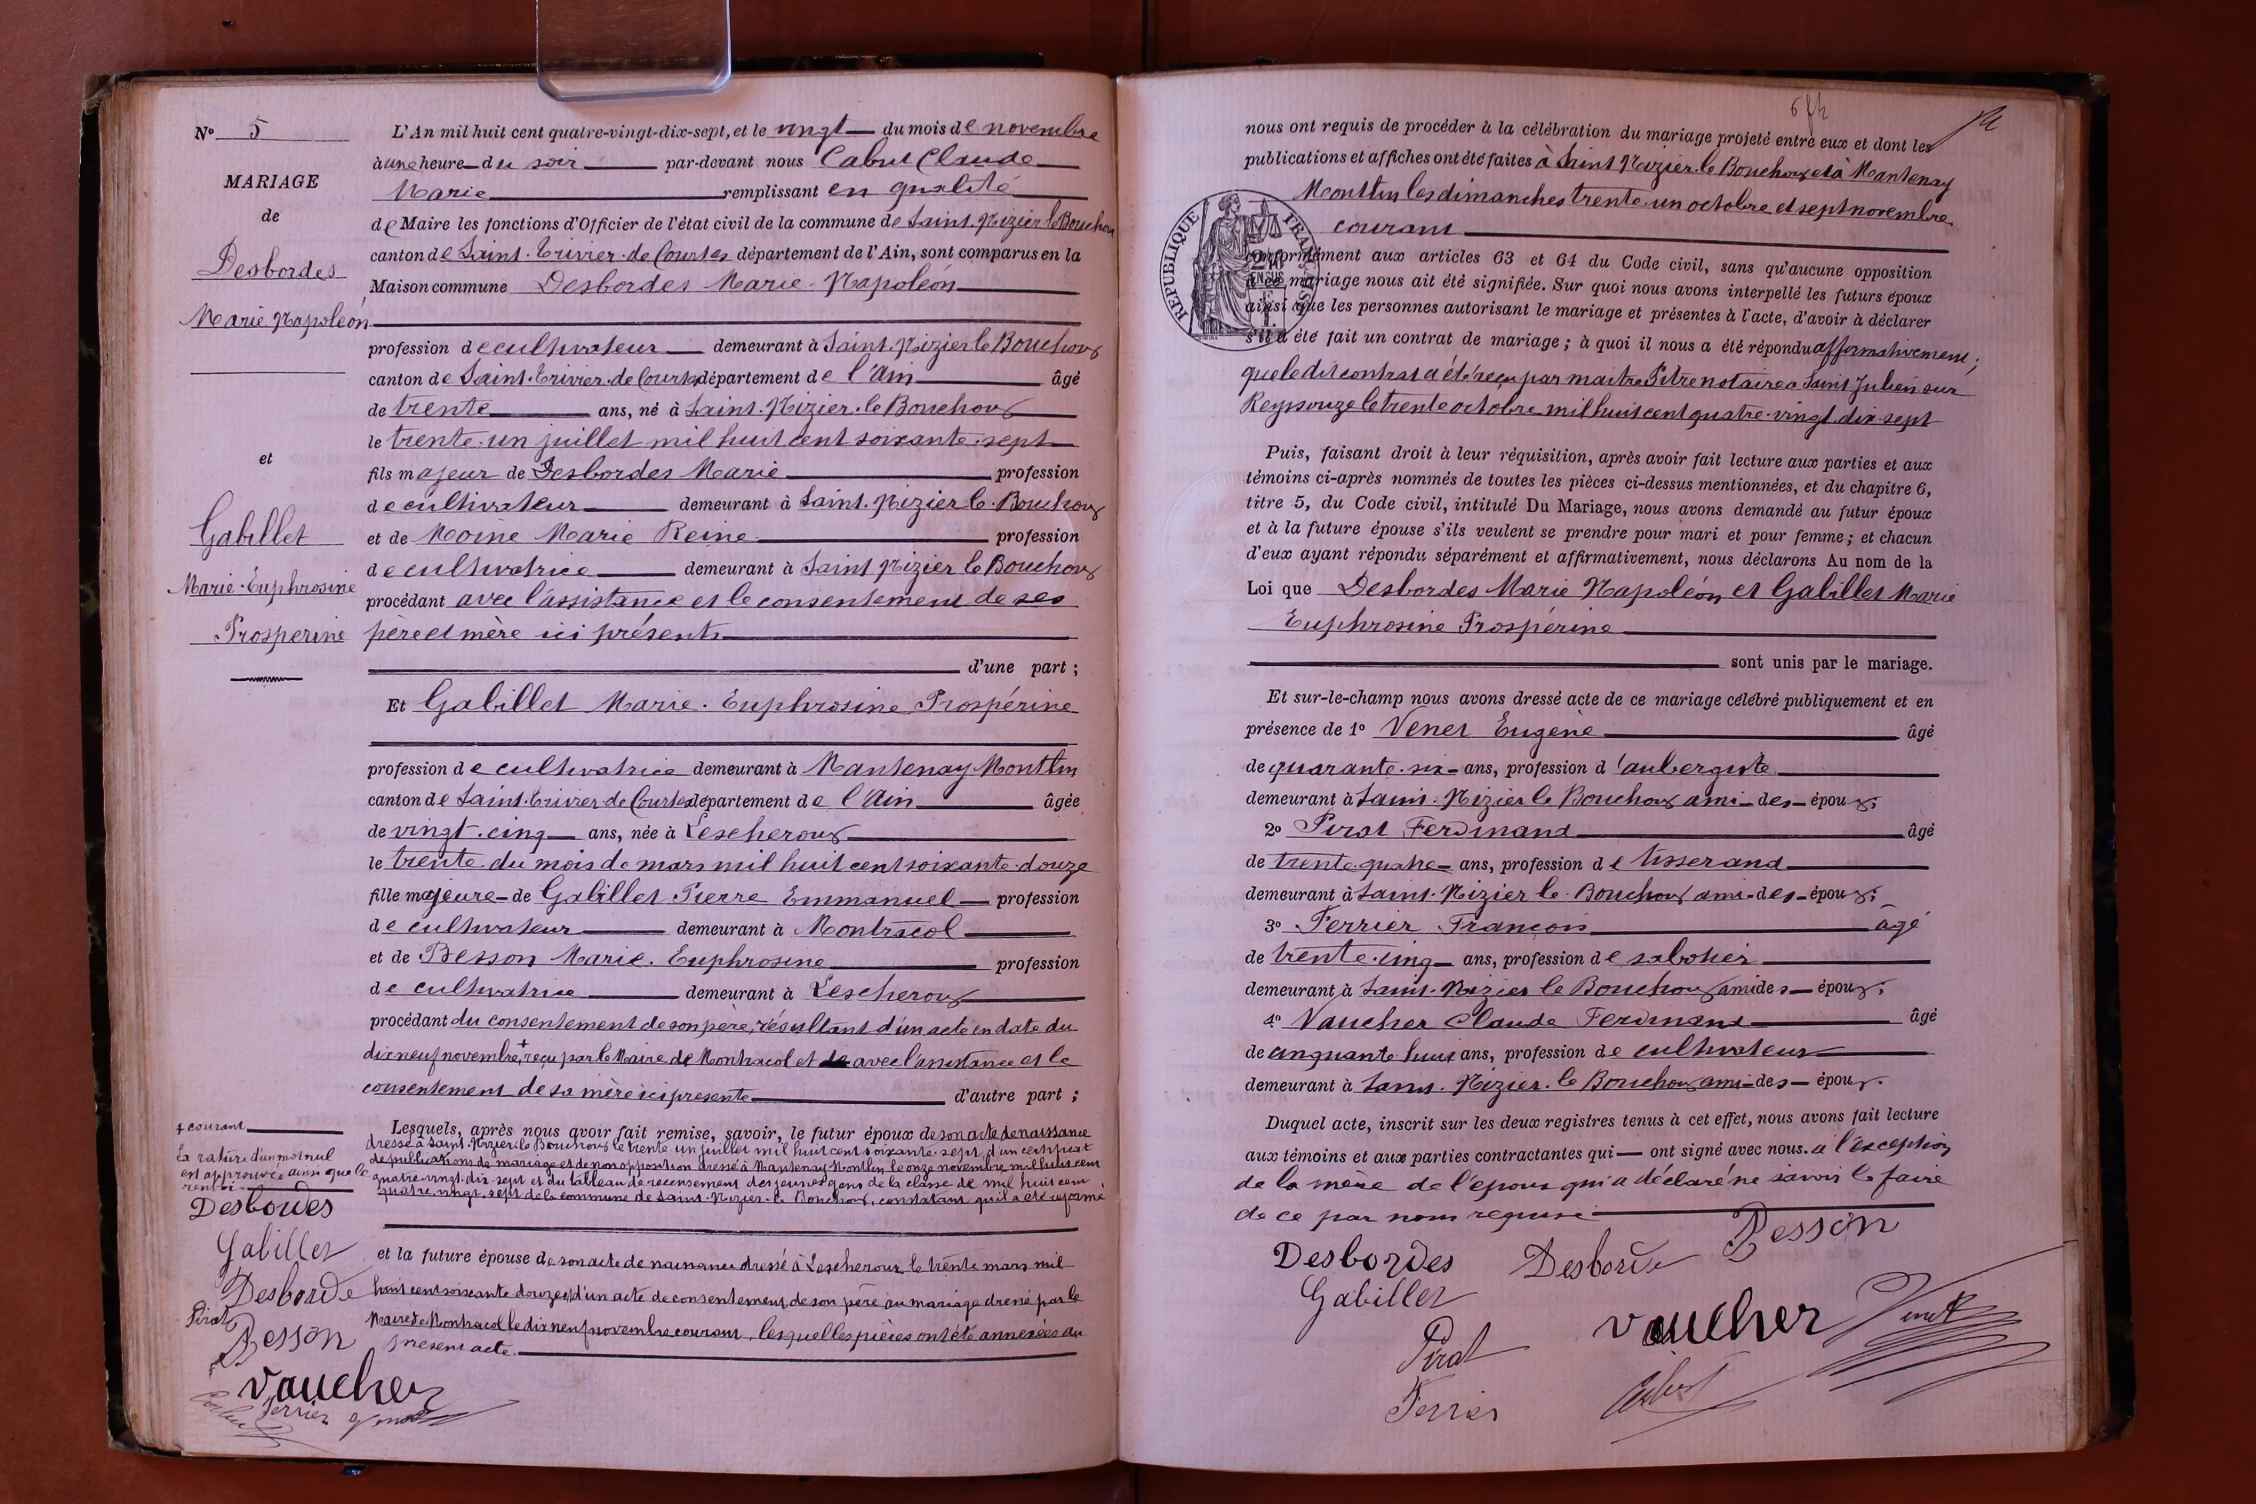 N° 5
MARIAGE
de
Desbordes
Marie Napoléon
et
Gabillet
Marie-Euphrosine
Prosperine
L'An mil huit cent quatre-vingt-dix-sept, et le vingt du mois de novembre
à une heure du soir par-devant nous Cabut Claude
Marie remplissant en qualité
de Maire les fonctions d'Officier de l'état civil de la commune de Saint-Nizier le Bouchoux
canton de Saint-Trivier-de Courtes département de l'Ain, sont comparus en la
Maison commune Desbordes Marie-Napoléon
profession de cultivateur demeurant à Saint-Nizier le Bouchoux
canton de Saint-Trivier-de Courtes département de l'Ain âgé
de trente ans, né à Saint-Nizier-le Bouchoux
le trente-un juillet mil huit cent soixante-sept
fils majeur de Desbordes Marie profession
de cultivateur demeurant à Saint-Nizier le-Bouchoux
et de Moine Marie Reine profession
de cultivatrice demeurant à Saint Nizier le Bouchoux
procédant avec l'assistance et le consentement de ses
père et mère ici présents
d'une part ;
Et Gabillet Marie-Euphrosine Prospérine
profession de cultivatrice demeurant à Mantenay-Montlin
canton de Saint-Trivier-de Courtes département de l'Ain âgée
de vingt-cinq ans, née à Lescheroux
le trente du mois de mars mil huit cent soixante-douze
fille majeure de Gabillet Pierre Emmanuel profession
de cultivateur demeurant à Montracol
et de Besson Marie-Euphrosine profession
de cultivatrice demeurant à Lescheroux
procédant du consentement de son père, résultant d'un acte en date du
dix neuf novembre + reçu par le Maire de Montracol et avec l'assistance et le
consentement de sa mère ici présente d'autre part ;
Lesquels, après nous avoir fait remise, savoir, le futur époux de son acte de naissance
dressé à Saint-Nizier le Bouchoux le trente un juillet mil huit cent soixante-sept, d'un certificat
de publications de mariage et de non opposition dressé à Mantenay Montlin le onze novembre mil huit cent
quatre-vingt-dix-sept et du tableau de recensement des jeunes gens de la classe de mil huit cent
quatre-vingt-sept de la commune de Saint-Nizier-le Bouchoux, constatant qu'il a été réformé
et la future épouse de son acte de naissance dressé à Lescheroux le trente mars mil
huit cent soixante douze, et d'un acte de consentement de son père au mariage dressé par le
Maire de Montracol le dix neuf novembre courant, lesquelles pièces ont été annexées au
présent acte.
+ courant
La rature d'un mot nul
est approuvée ainsi que le
renvoi
Desbordes
Gabillet
Desborde
Pirat
Besson
Vaucher
Ferrier
nous ont requis de procéder à la célébration du mariage projeté entre eux et dont les
publications et affiches ont été faites à Saint Nizier-le Bouchoux et à Mantenay
Montlin les dimanches trente-un octobre et sept novembre
courant
conformément aux articles 63 et 64 du Code civil, sans qu'aucune opposition
à ce mariage nous ait été signifiée. Sur quoi nous avons interpellé les futurs époux
ainsi que les personnes autorisant le mariage et présentes à l'acte, d'avoir à déclarer
s'il a été fait un contrat de mariage ; à quoi il nous a été répondu affirmativement ;
que le dit contrat a été reçu par maître Pitre notaire à Saint Julien sur
Reyssouze le trente octobre mil huit cent quatre-vingt-dix-sept
RÉPUBLIQUE FRANÇAISE
Puis, faisant droit à leur réquisition, après avoir fait lecture aux parties et aux
témoins ci-après nommés de toutes les pièces ci-dessus mentionnées, et du chapitre 6,
titre 5, du Code civil, intitulé Du Mariage, nous avons demandé au futur époux
et à la future épouse s'ils veulent se prendre pour mari et pour femme ; et chacun
d'eux ayant répondu séparément et affirmativement, nous déclarons Au nom de la
Loi que Desbordes Marie Napoléon et Gabillet Marie
Euphrosine Prospérine
sont unis par le mariage.
Et sur-le-champ nous avons dressé acte de ce mariage célébré publiquement et en
présence de 1° Venet Eugène âgé
de quarante-six ans, profession d'aubergiste
demeurant à Saint-Nizier le Bouchoux ami des époux.
2° Pirat Ferdinand âgé
de trente quatre ans, profession de tisserand
demeurant à Saint-Nizier le-Bouchoux ami des époux.
3° Ferrier François âgé
de trente-cinq ans, profession de sabotier
demeurant à Saint-Nizier le Bouchoux ami des époux.
4° Vaucher Claude Ferdinand âgé
de cinquante huit ans, profession de cultivateur
demeurant à Saint-Nizier-le Bouchoux ami des époux.
Duquel acte, inscrit sur les deux registres tenus à cet effet, nous avons fait lecture
aux témoins et aux parties contractantes qui ont signé avec nous. à l'exception
de la mère de l'époux qui a déclaré ne savoir le faire
de ce par nous requise
Desbordes Desborde Besson
Gabillet
Vaucher Venet
Pirat
Cabut
Ferrier